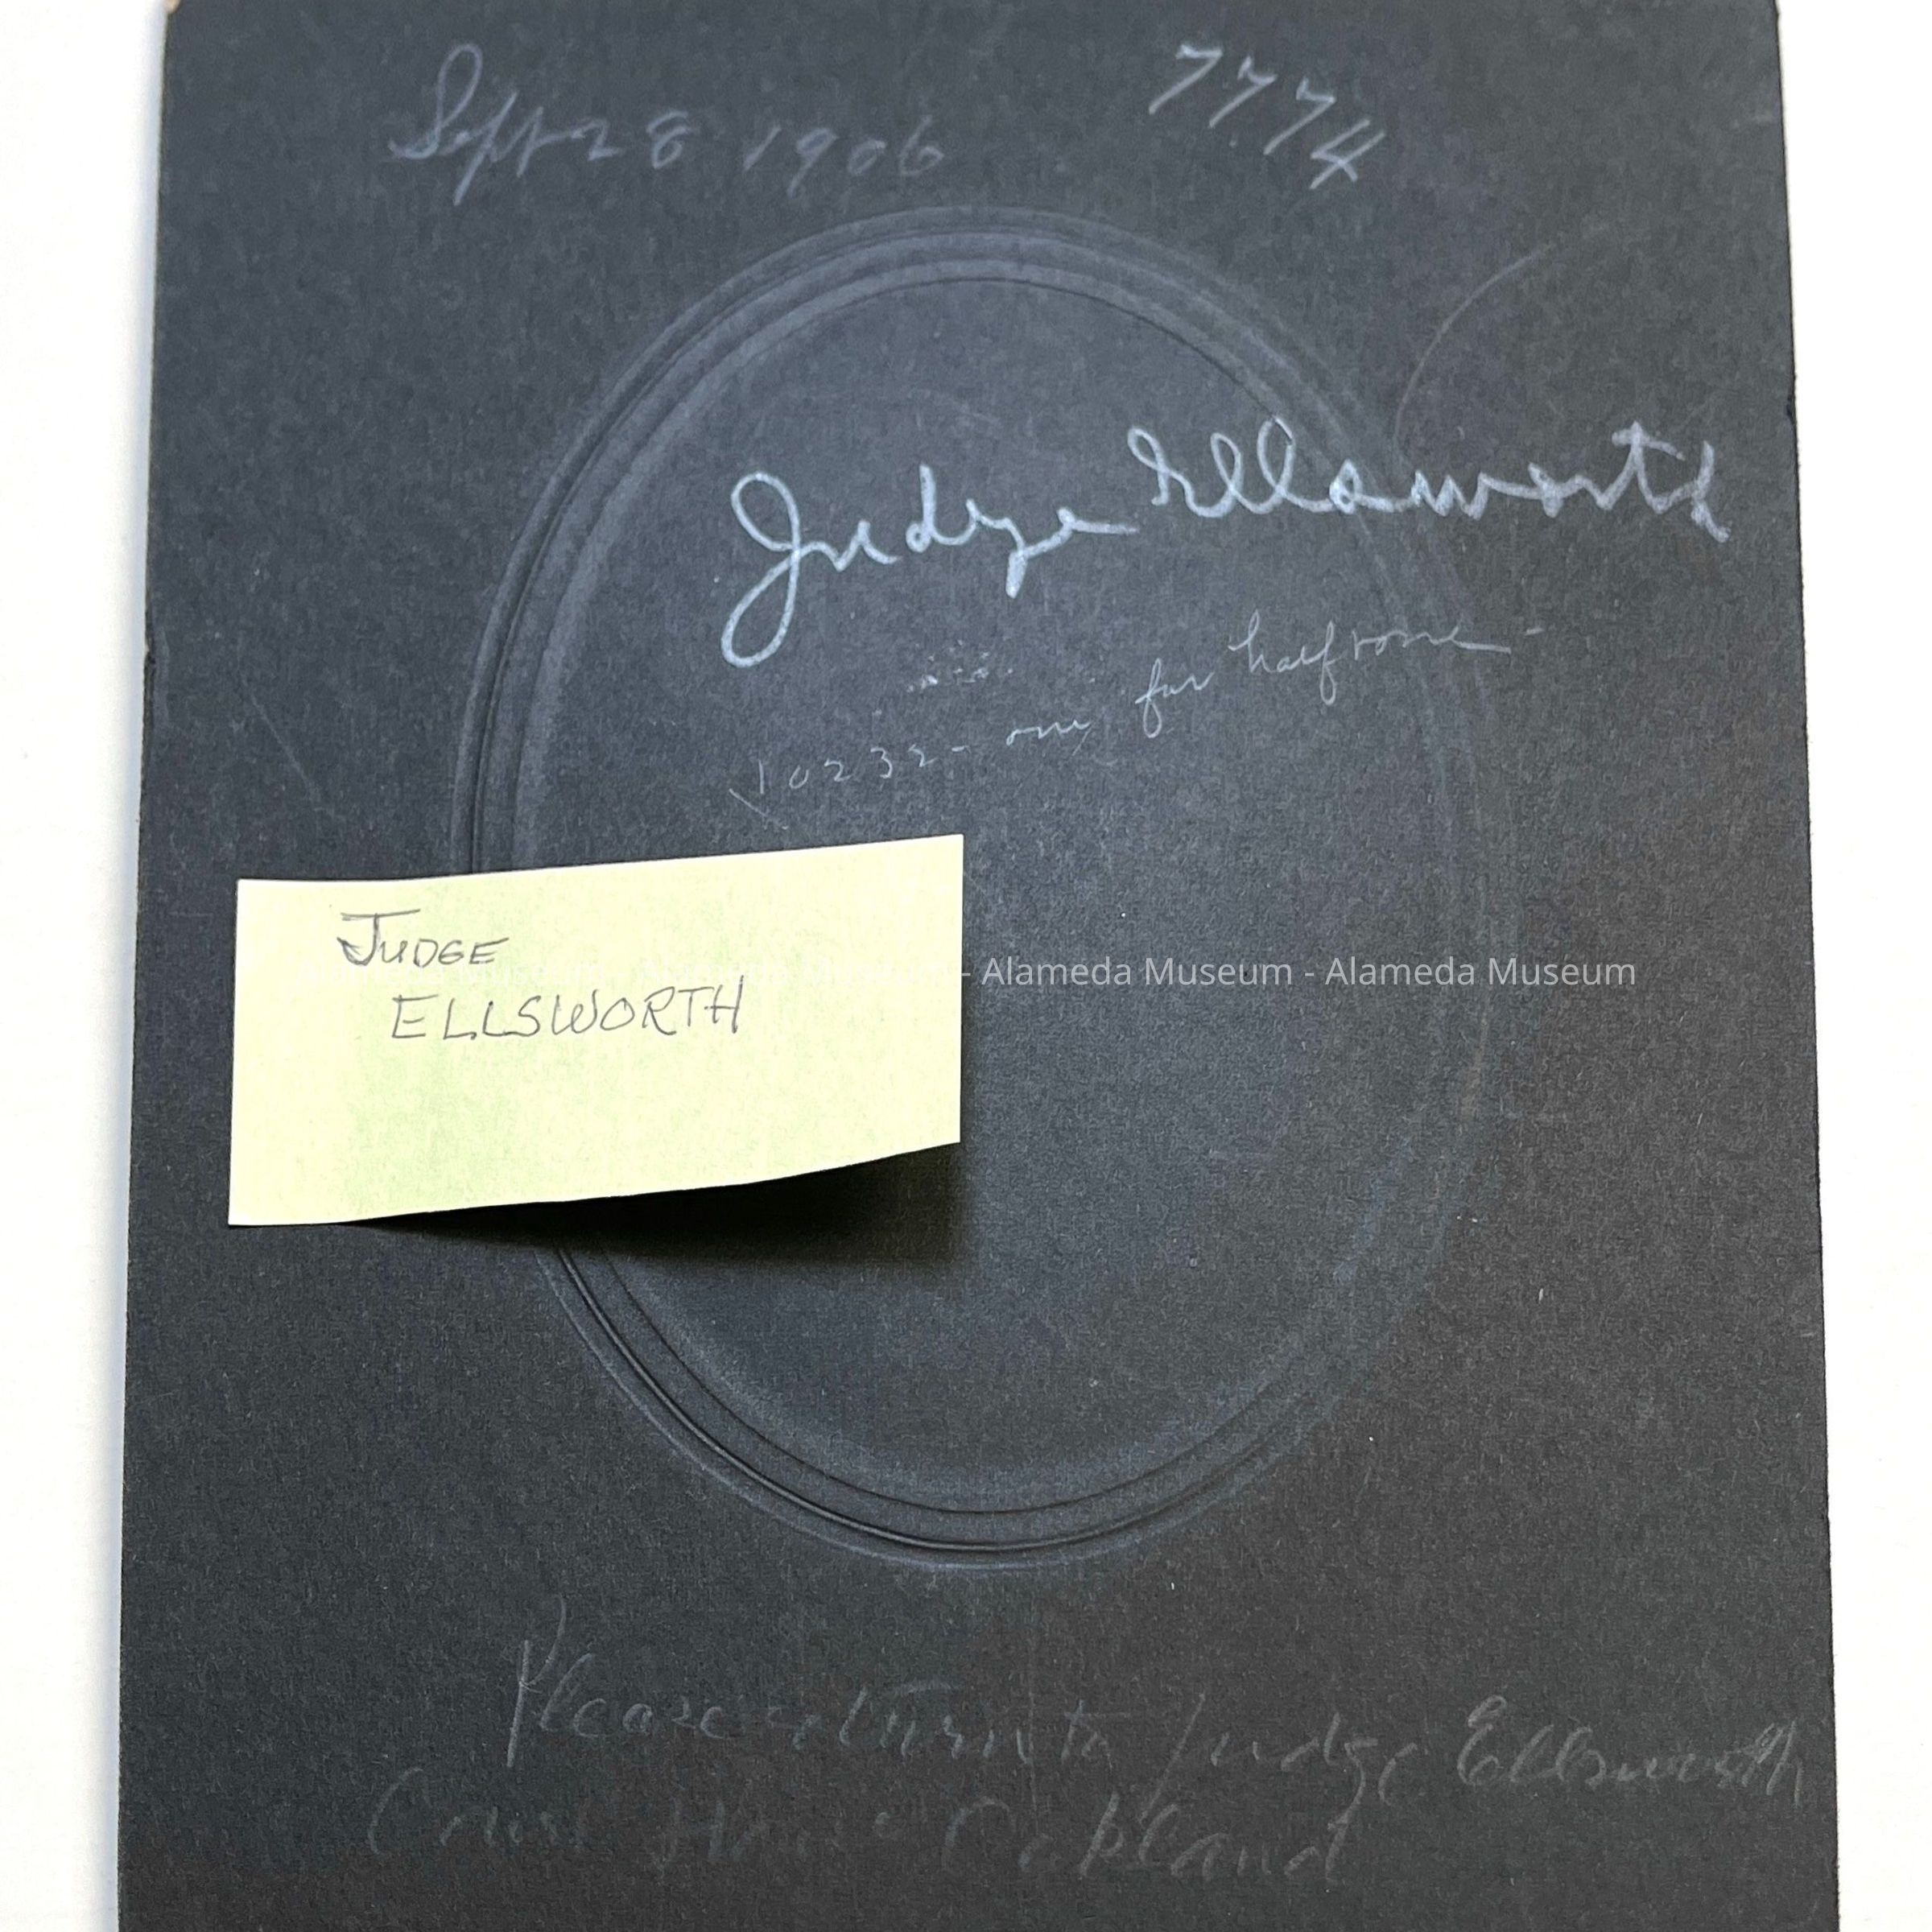 Sept 28 1906
7774
Judge Ellsworth
10232 - one for halftone -
JUDGE
ELLSWORTH
Alameda Museum - Alameda Museum
Please return to Judge Ellsworth
Court House Oakland